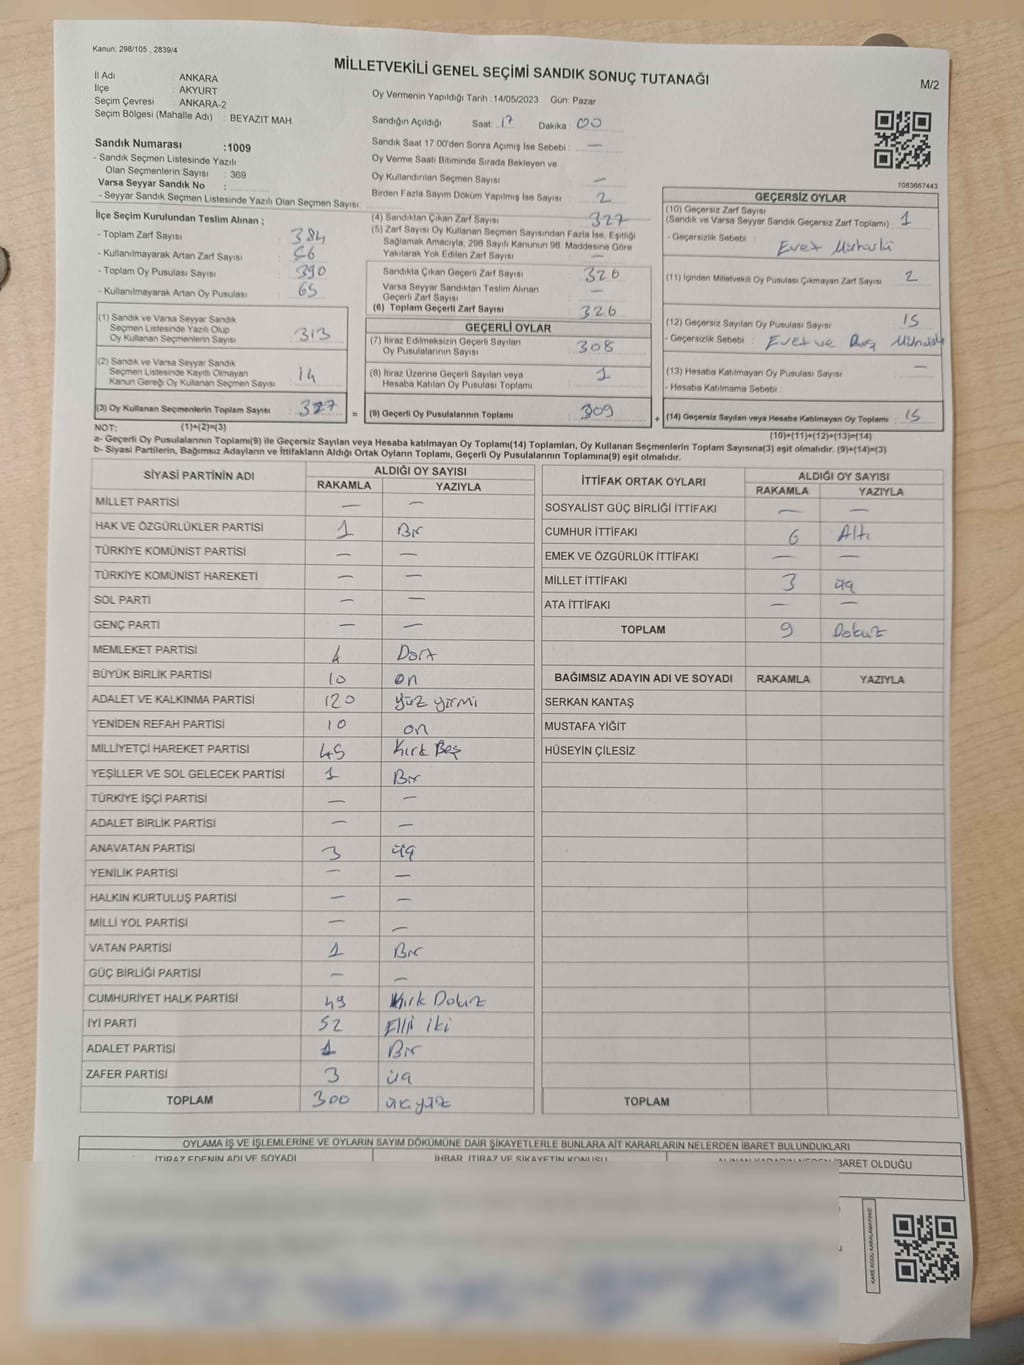 Kanun: 298/105 , 2839/4
MİLLETVEKİLİ GENEL SEÇİMİ SANDIK SONUÇ TUTANAĞI
M/2
İl Adı : ANKARA
İlçe : AKYURT
Seçim Çevresi : ANKARA-2
Seçim Bölgesi (Mahalle Adı) : BEYAZIT MAH.
Oy Vermenin Yapıldığı Tarih :14/05/2023 Gün: Pazar
Sandığın Açıldığı Saat: 17 Dakika : 00
Sandık Saat 17.00'den Sonra Açımış İse Sebebi : —
Oy Verme Saati Bitiminde Sırada Bekleyen ve
Oy Kullandırılan Seçmen Sayısı : —
Birden Fazla Sayım Döküm Yapılmış İse Sayısı : 2
Sandık Numarası :1009
- Sandık Seçmen Listesinde Yazılı
Olan Seçmenlerin Sayısı : 369
Varsa Seyyar Sandık No :
- Seyyar Sandık Seçmen Listesinde Yazılı Olan Seçmen Sayısı:
1083667443
İlçe Seçim Kurulundan Teslim Alınan ;
- Toplam Zarf Sayısı : 384
- Kullanılmayarak Artan Zarf Sayısı : 56
- Toplam Oy Pusulası Sayısı : 390
- Kullanılmayarak Artan Oy Pusulası : 65
(1) Sandık ve Varsa Seyyar Sandık
Seçmen Listesinde Yazılı Olup
Oy Kullanan Seçmenlerin Sayısı : 313
(2) Sandık ve Varsa Seyyar Sandık
Seçmen Listesinde Kayıtlı Olmayan
Kanun Gereği Oy Kullanan Seçmen Sayısı : 14
(3) Oy Kullanan Seçmenlerin Toplam Sayısı : 327
(4) Sandıktan Çıkan Zarf Sayısı : 327
(5) Zarf Sayısı Oy Kullanan Seçmen Sayısından Fazla İse, Eşitliği
Sağlamak Amacıyla, 298 Sayılı Kanunun 98. Maddesine Göre
Yakılarak Yok Edilen Zarf Sayısı : —
Sandıkta Çıkan Geçerli Zarf Sayısı : 326
Varsa Seyyar Sandıktan Teslim Alınan
Geçerli Zarf Sayısı : —
(6) Toplam Geçerli Zarf Sayısı : 326
GEÇERLİ OYLAR
(7) İtiraz Edilmeksizin Geçerli Sayılan
Oy Pusulalarının Sayısı : 308
(8) İtiraz Üzerine Geçerli Sayılan veya
Hesaba Katılan Oy Pusulası Toplamı : 1
= (9) Geçerli Oy Pusulalarının Toplamı : 309
GEÇERSİZ OYLAR
(10) Geçersiz Zarf Sayısı
(Sandık ve Varsa Seyyar Sandık Geçersiz Zarf Toplamı) : 1
- Geçersizlik Sebebi : Evet Mühürlü
(11) İçinden Milletvekili Oy Pusulası Çıkmayan Zarf Sayısı : 2
(12) Geçersiz Sayılan Oy Pusulası Sayısı : 15
- Geçersizlik Sebebi : Evet ve Boş
(13) Hesaba Katılmayan Oy Pusulası Sayısı : —
- Hesaba Katılmama Sebebi :
+ (14) Geçersiz Sayılan veya Hesaba Katılmayan Oy Toplamı : 15
NOT: (1)+(2)=(3) (10)+(11)+(12)+(13)=(14)
a- Geçerli Oy Pusulalarının Toplamı(9) ile Geçersiz Sayılan veya Hesaba katılmayan Oy Toplamı(14) Toplamları, Oy Kullanan Seçmenlerin Toplam Sayısına(3) eşit olmalıdır. (9)+(14)=(3)
b- Siyasi Partilerin, Bağımsız Adayların ve İttifakların Aldığı Ortak Oyların Toplamı, Geçerli Oy Pusulalarının Toplamına(9) eşit olmalıdır.
SİYASİ PARTİNİN ADI ALDIĞI OY SAYISI
RAKAMLA YAZIYLA
MİLLET PARTİSİ — —
HAK VE ÖZGÜRLÜKLER PARTİSİ 1 Bir
TÜRKİYE KOMÜNİST PARTİSİ — —
TÜRKİYE KOMÜNİST HAREKETİ — —
SOL PARTİ — —
GENÇ PARTİ — —
MEMLEKET PARTİSİ 4 Dört
BÜYÜK BİRLİK PARTİSİ 10 on
ADALET VE KALKINMA PARTİSİ 120 yüz yirmi
YENİDEN REFAH PARTİSİ 10 on
MİLLİYETÇİ HAREKET PARTİSİ 45 Kırk Beş
YEŞİLLER VE SOL GELECEK PARTİSİ 1 Bir
TÜRKİYE İŞÇİ PARTİSİ — —
ADALET BİRLİK PARTİSİ — —
ANAVATAN PARTİSİ 3 üç
YENİLİK PARTİSİ — —
HALKIN KURTULUŞ PARTİSİ — —
MİLLİ YOL PARTİSİ — —
VATAN PARTİSİ 1 Bir
GÜÇ BİRLİĞİ PARTİSİ — —
CUMHURİYET HALK PARTİSİ 49 Kırk Dokuz
İYİ PARTİ 52 Elli iki
ADALET PARTİSİ 1 Bir
ZAFER PARTİSİ 3 üç
TOPLAM 300 üç yüz
İTTİFAK ORTAK OYLARI ALDIĞI OY SAYISI
RAKAMLA YAZIYLA
SOSYALİST GÜÇ BİRLİĞİ İTTİFAKI — —
CUMHUR İTTİFAKI 6 Altı
EMEK VE ÖZGÜRLÜK İTTİFAKI — —
MİLLET İTTİFAKI 3 üç
ATA İTTİFAKI — —
TOPLAM 9 Dokuz
BAĞIMSIZ ADAYIN ADI VE SOYADI RAKAMLA YAZIYLA
SERKAN KANTAŞ
MUSTAFA YİĞİT
HÜSEYİN ÇİLESİZ
TOPLAM
OYLAMA İŞ VE İŞLEMLERİNE VE OYLARIN SAYIM DÖKÜMÜNE DAİR ŞİKAYETLERLE BUNLARA AİT KARARLARIN NELERDEN İBARET BULUNDUKLARI
İTİRAZ EDENİN ADI VE SOYADI İHBAR, İTİRAZ VE ŞİKAYETİN KONUSU İBARET OLDUĞU
KARE KODU KARALAMAYINIZ